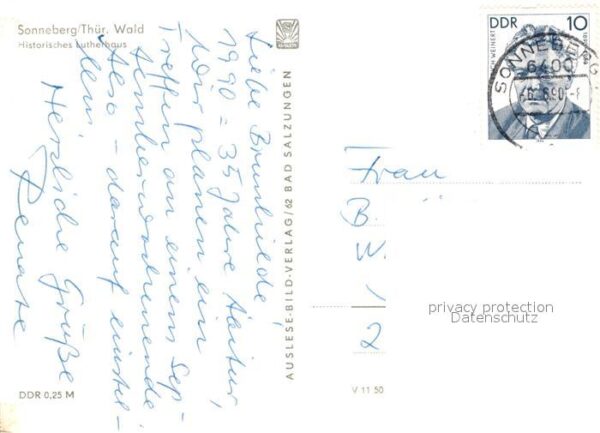 Sonneberg/Thür. Wald
Historisches Lutherhaus
Liebe Brunhilde!
1990 = 35 Jahre Abitur,
Wir planen ein
Treffen an einem Sep-
temberwochenende
Also - darauf einstel-
len!
Herzliche Grüße
Renate
DDR 0,25 M
AUSLESE-BILD-VERLAG/62 BAD SALZUNGEN
V 11 50
DDR 10
WEINERT
SONNEBERG
6400
-6. 6.90 -8
Frau
B.
W.
2
privacy protection
Datenschutz